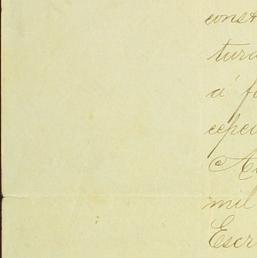 const
tura
á fo
cepci
As
mil
Escr